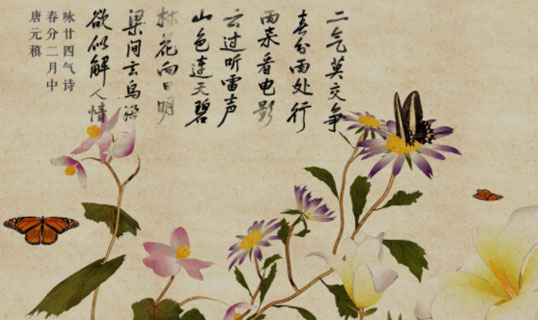 二气莫交争
春分雨处行
雨来看电影
云过听雷声
山色连天碧
林花向日明
梁间玄鸟语
欲似解人情
咏廿四气诗
春分二月中
唐元稹